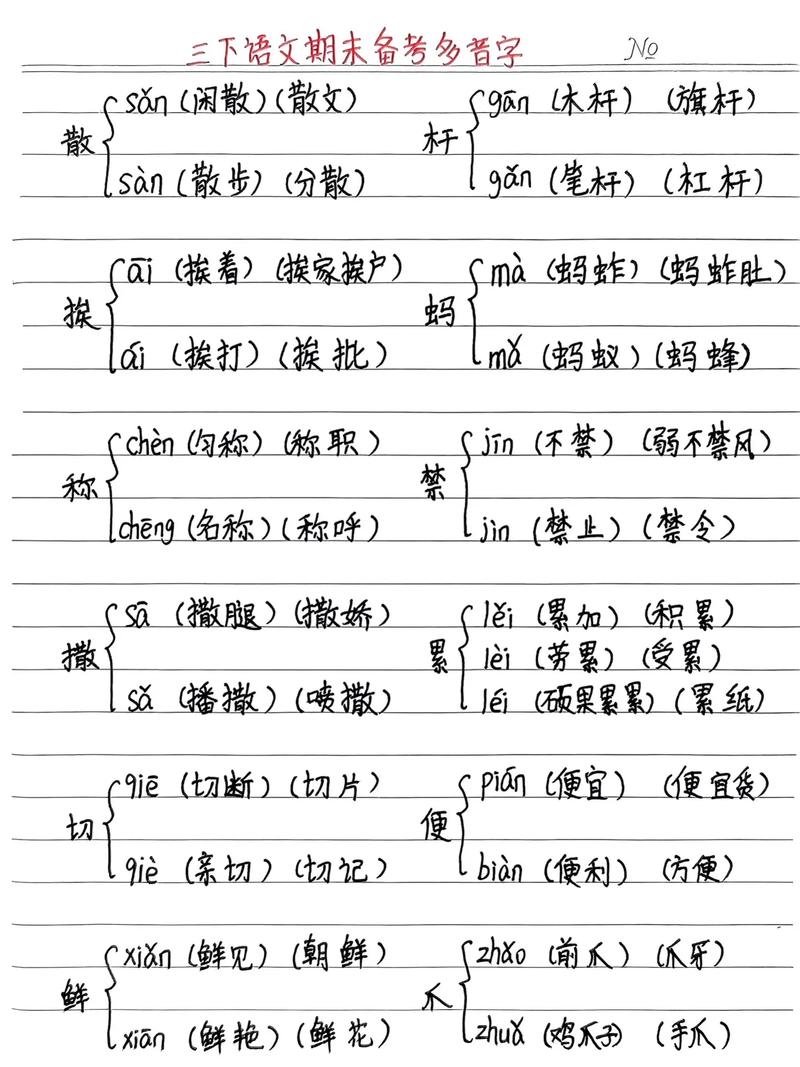 三下语文期末备考多音字 No
散 sǎn (闲散) (散文)
sàn (散步) (分散)
杆 gān (木杆) (旗杆)
gǎn (笔杆) (杠杆)
挨 āi (挨着) (挨家挨户)
ái (挨打) (挨批)
蚂 mà (蚂蚱) (蚂蚱肚)
mǎ (蚂蚁) (蚂蜂)
称 chèn (匀称) (称职)
chēng (名称) (称呼)
禁 jīn (不禁) (弱不禁风)
jìn (禁止) (禁令)
撒 sā (撒腿) (撒娇)
sǎ (播撒) (喷撒)
累 lěi (累加) (积累)
lèi (劳累) (受累)
léi (硕果累累) (累纸)
切 qiē (切断) (切片)
qiè (亲切) (切记)
便 pián (便宜) (便宜货)
biàn (便利) (方便)
鲜 xiǎn (鲜见) (朝鲜)
xiān (鲜艳) (鲜花)
爪 zhǎo (前爪) (爪牙)
zhuǎ (鸡爪子) (手爪)